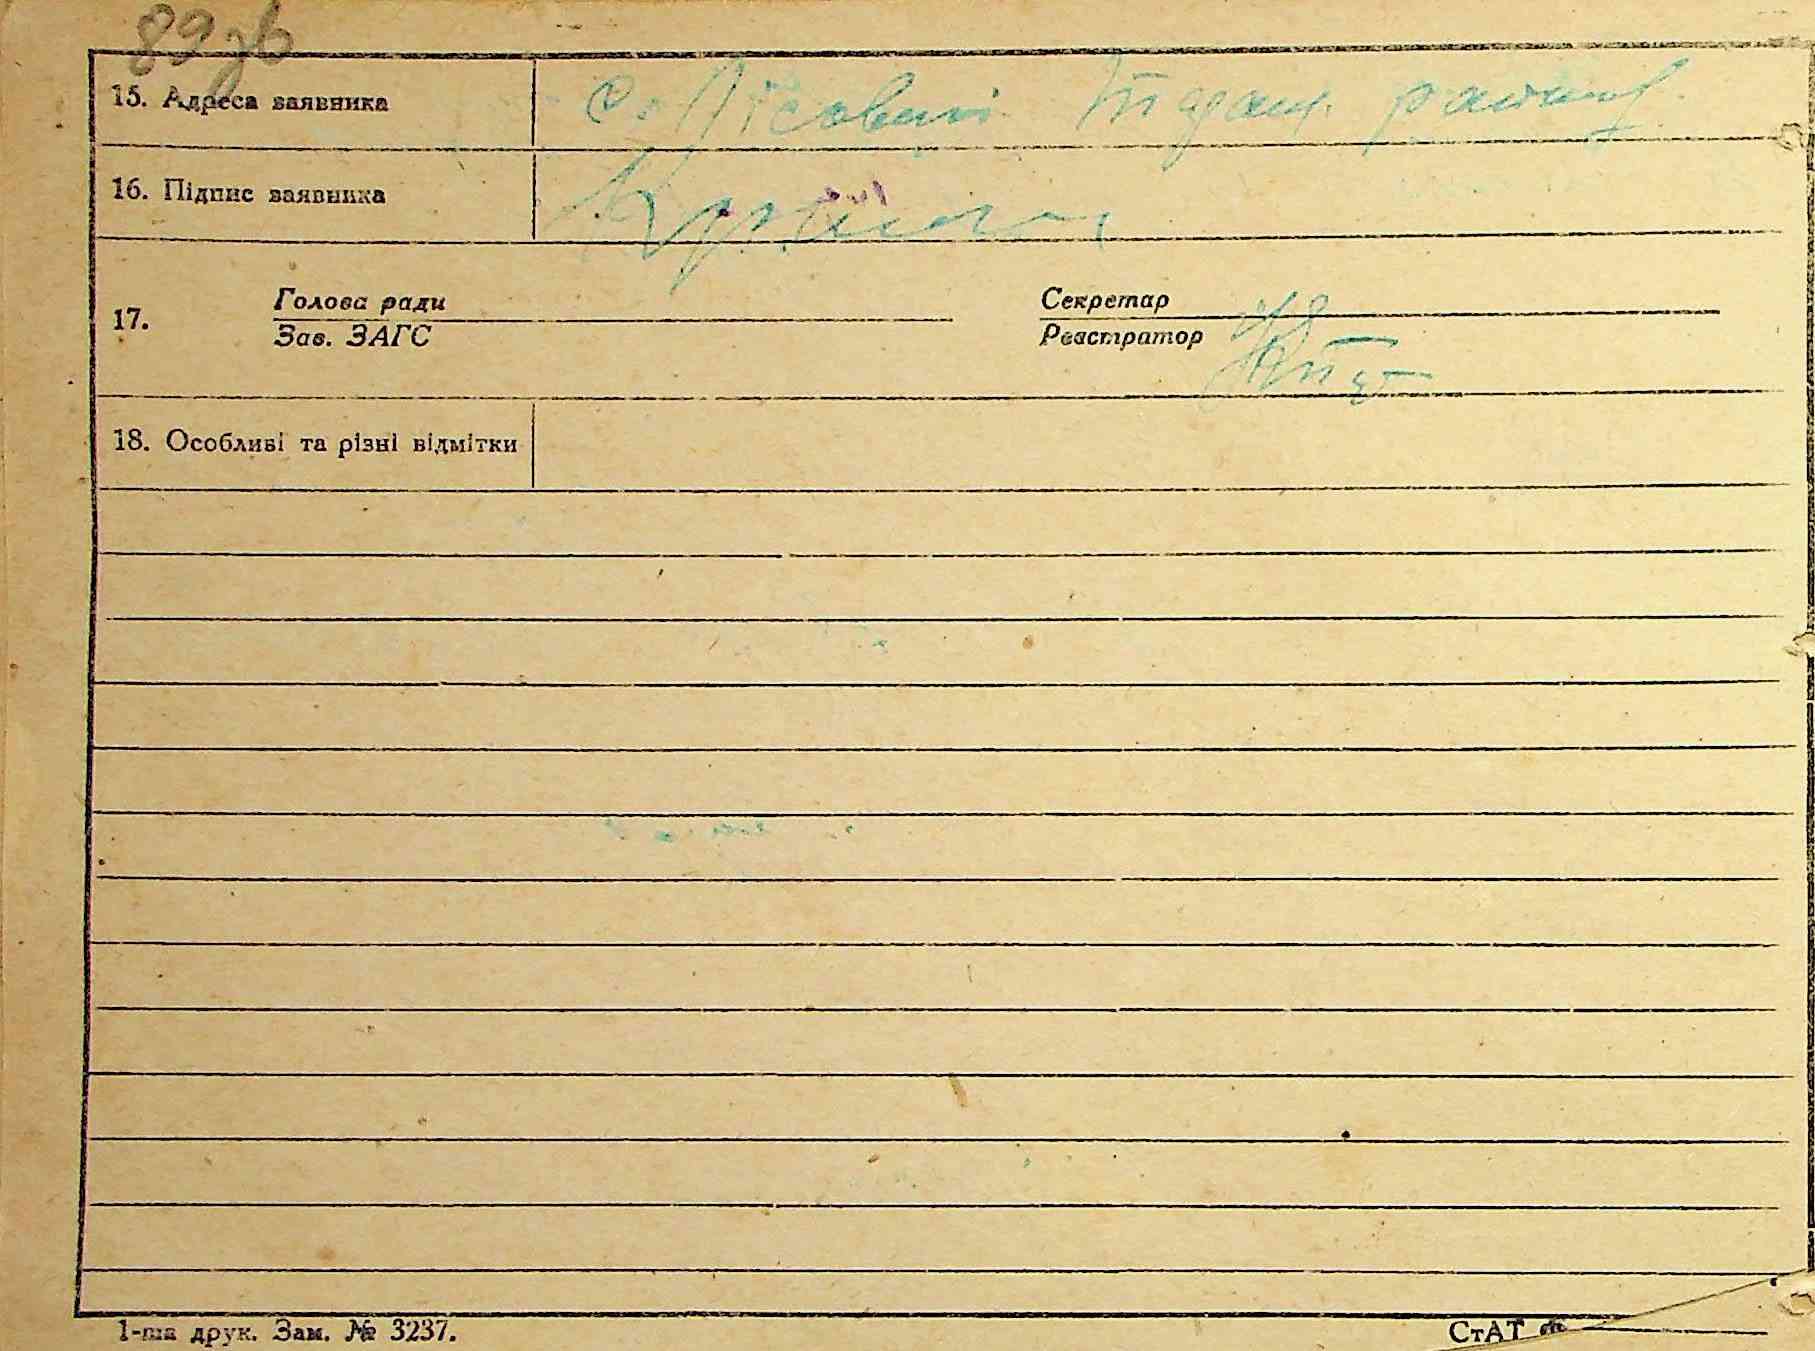 89зв
15. Адреса заявника с. Лісовичі Таращ. району
16. Підпис заявника
17. Голова ради Секретар
Зав. ЗАГС Реєстратор
18. Особливі та різні відмітки
1-ша друк. Зам. № 3237.
СтАТ